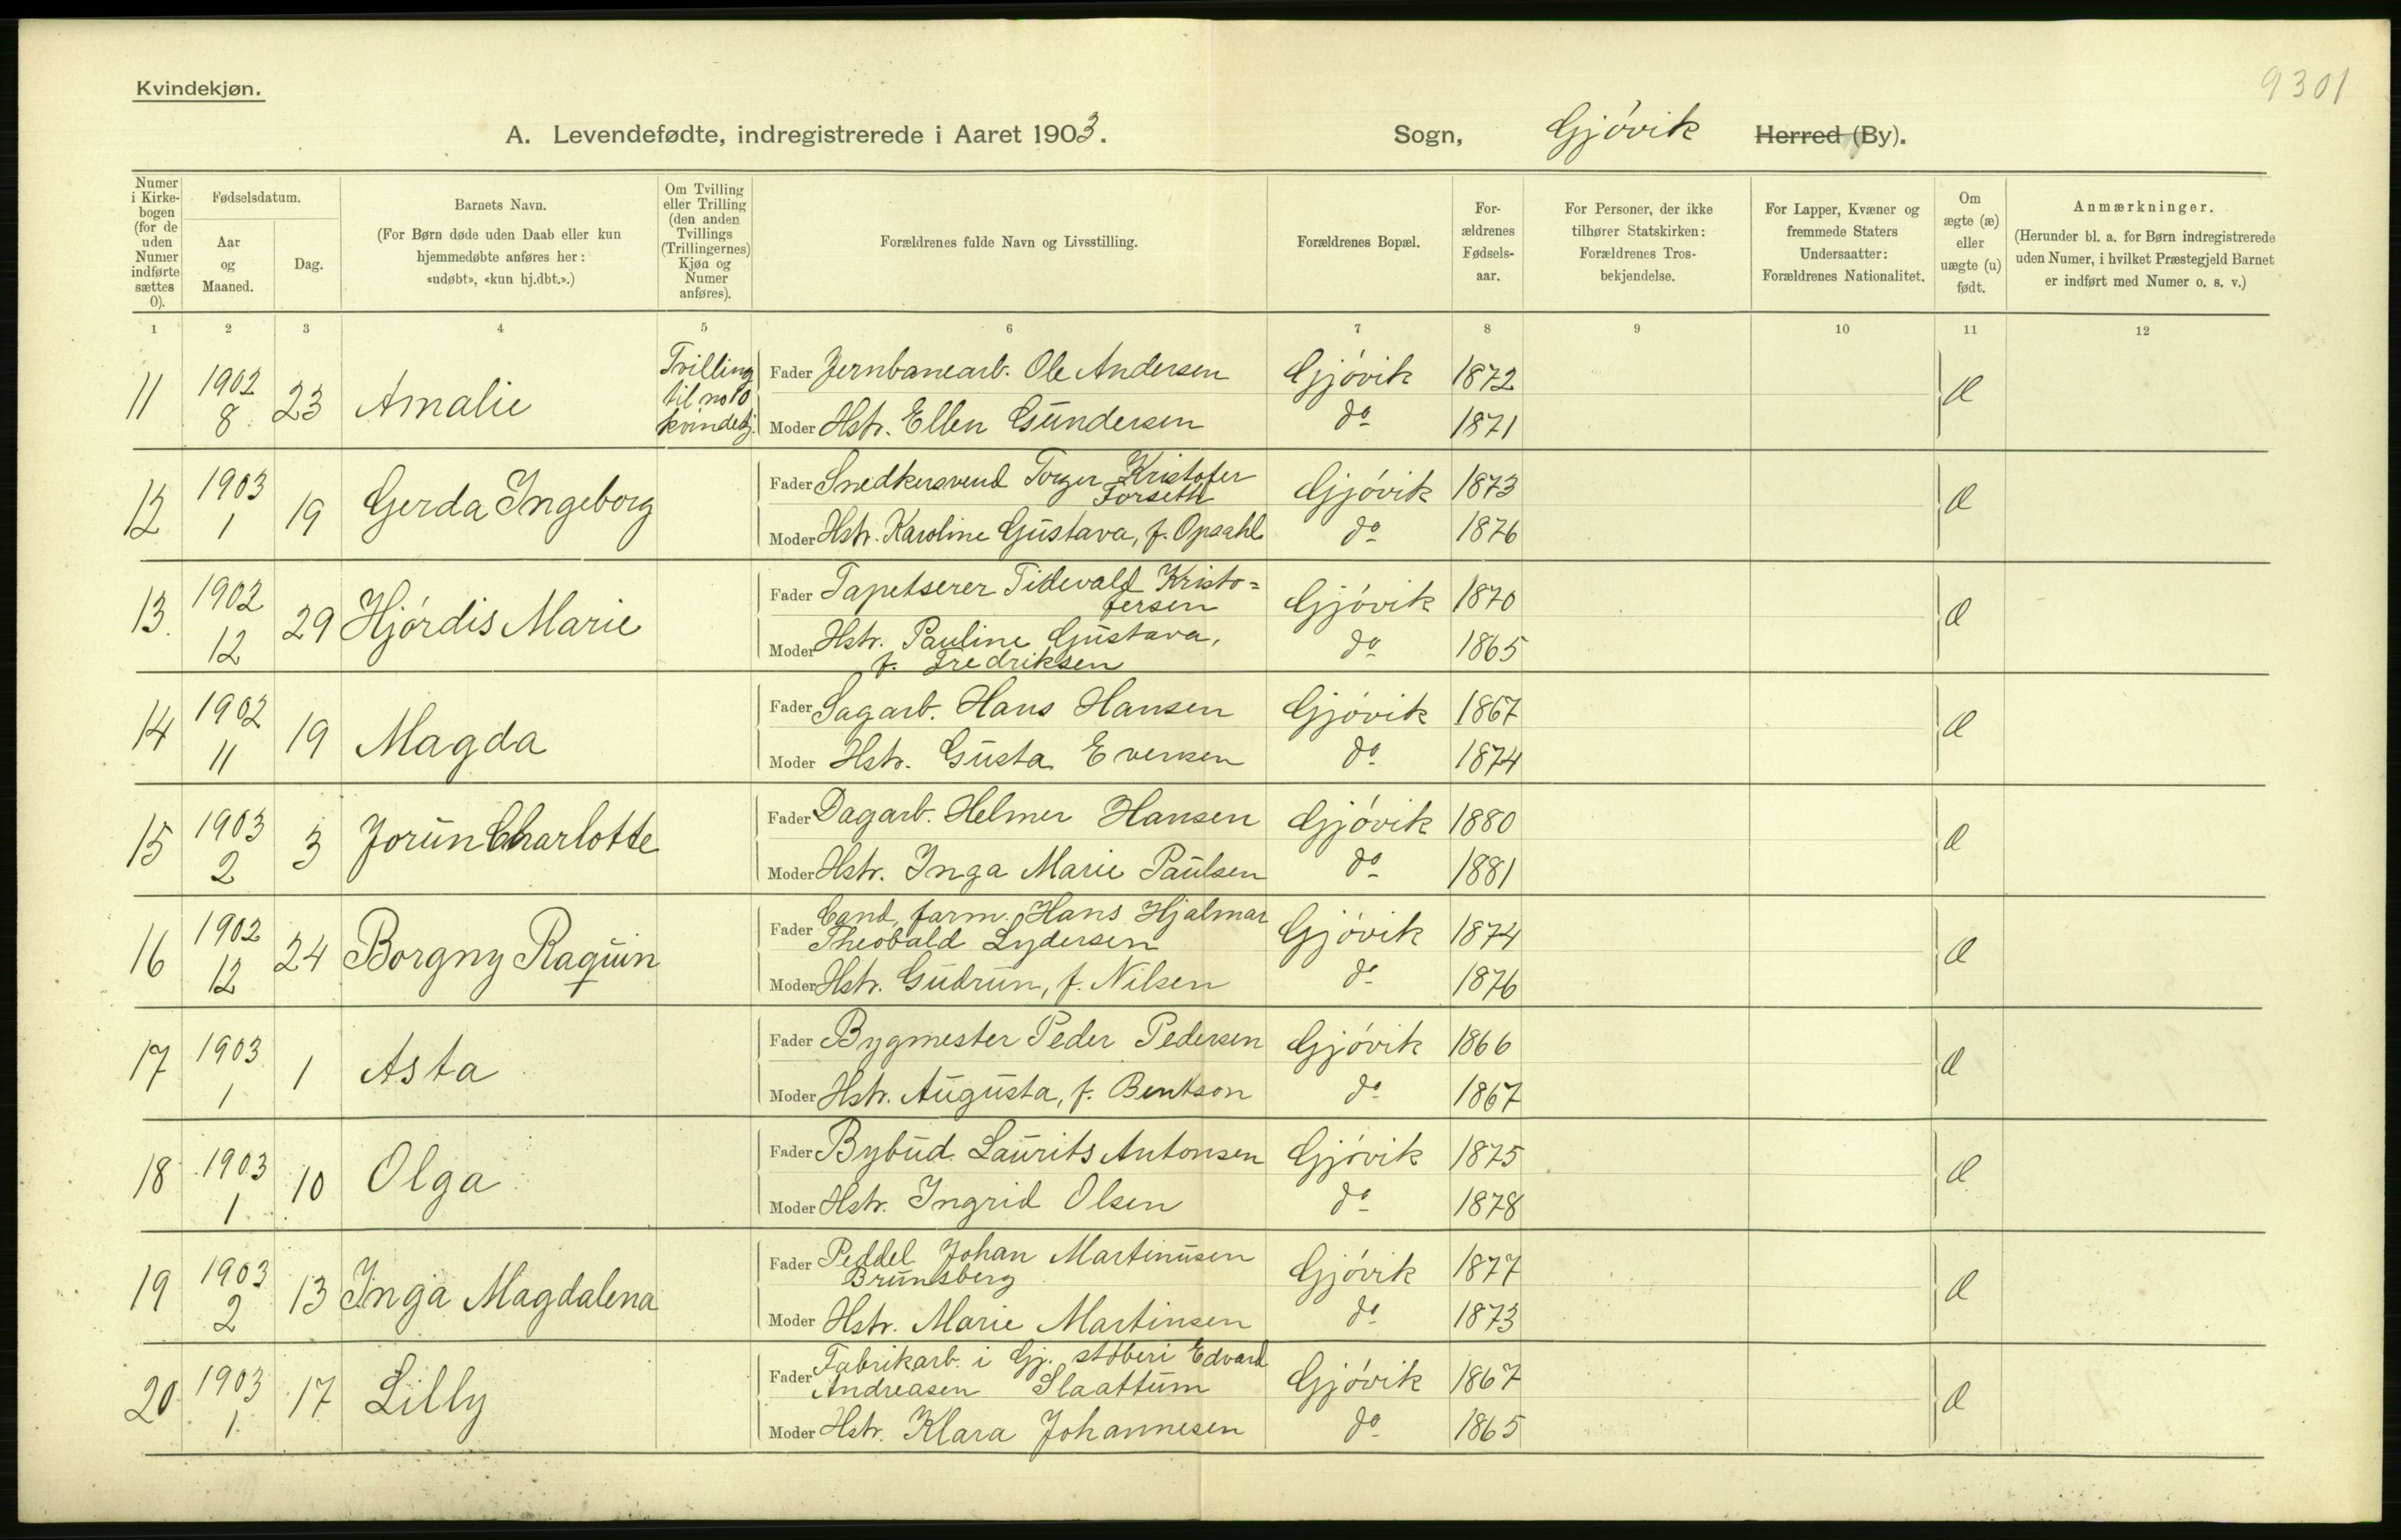 Kvindekjøn.
9301
A. Levendefødte, indregistrerede i Aaret 1903. Sogn, Gjövik Herred (By).
Numer i Kirkebogen (for de uden Numer indførte sættes 0).
Fødselsdatum.
Aar og Maaned.
Dag.
Barnets Navn.
(For Børn døde uden Daab eller kun hjemmedøbte anføres her: «udøbt», «kun hj.dbt.».)
Om Tvilling eller Trilling (den anden Tvillings (Trillingernes) Kjøn og Numer anføres).
Forældrenes fulde Navn og Livsstilling.
Forældrenes Bopæl.
Forældrenes Fødselsaar.
For Personer, der ikke tilhører Statskirken: Forældrenes Trosbekjendelse.
For Lapper, Kvæner og fremmede Staters Undersaatter: Forældrenes Nationalitet.
Om ægte (æ) eller uægte (u) født.
Anmærkninger.
(Herunder bl. a. for Børn indregistrerede uden Numer, i hvilket Præstegjeld Barnet er indført med Numer o. s. v.)
1 2 3 4 5 6 7 8 9 10 11 12
11 1902 8 23 Amalie Tvilling til no 10 kvindekj.
Fader Jernbanearb. Ole Andersen Gjövik 1872 æ
Moder Hstr. Ellen Gundersen do 1871
12 1903 1 19 Gerda Ingeborg
Fader Snedkersvend Torger Kristofer Forseth Gjövik 1873 æ
Moder Hstr. Karoline Gustava, f. Opsahl do 1876
13. 1902 12 29 Hjördis Marie
Fader Tapetserer Tidevald Kristo=fersen Gjövik 1870 æ
Moder Hstr. Pauline Gustava, f. Fredriksen do 1865
14 1902 11 19 Magda
Fader Sagarb. Hans Hansen Gjövik 1867 æ
Moder Hstr. Gusta Evensen do 1874
15 1903 2 3 Jorun Charlotte
Fader Dagarb. Helmer Hansen Gjövik 1880 æ
Moder Hstr. Inga Marie Paulsen do 1881
16 1902 12 24 Borgny Raquin
Fader Cand. farm. Hans Hjalmar Theobald Lydersen Gjövik 1874 æ
Moder Hstr. Gudrun, f. Nilsen do 1876
17 1903 1 1 Asta
Fader Bygmester Peder Pedersen Gjövik 1866 æ
Moder Hstr. Augusta, f. Bentson do 1867
18 1903 1 10 Olga
Fader Bybud Laurits Antonsen Gjövik 1875 æ
Moder Hstr. Ingrid Olsen do 1878
19 1903 2 13 Inga Magdalena
Fader Peddel Johan Martinusen Brunsberg Gjövik 1877 æ
Moder Hstr. Marie Martinsen do 1873
20 1903 1 17 Lilly
Fader Fabrikarb. i Gj. støberi Edvard Andreasen Slaattum Gjövik 1867 æ
Moder Hstr. Klara Johannesen do 1865